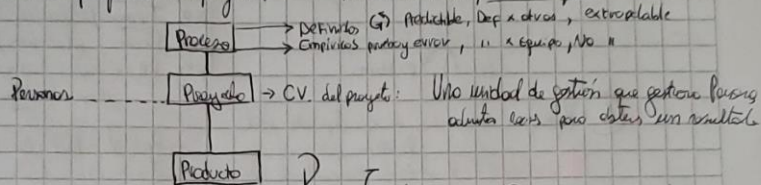 Proceso → Definidos (G) Predictible, Def x otros, extrapolable
→ Empíricos prueba y error, " x Equipo, No "
Personas Proyecto → CV. del proyecto: Una unidad de gestión que gestiona
para obtener un resultado
Producto